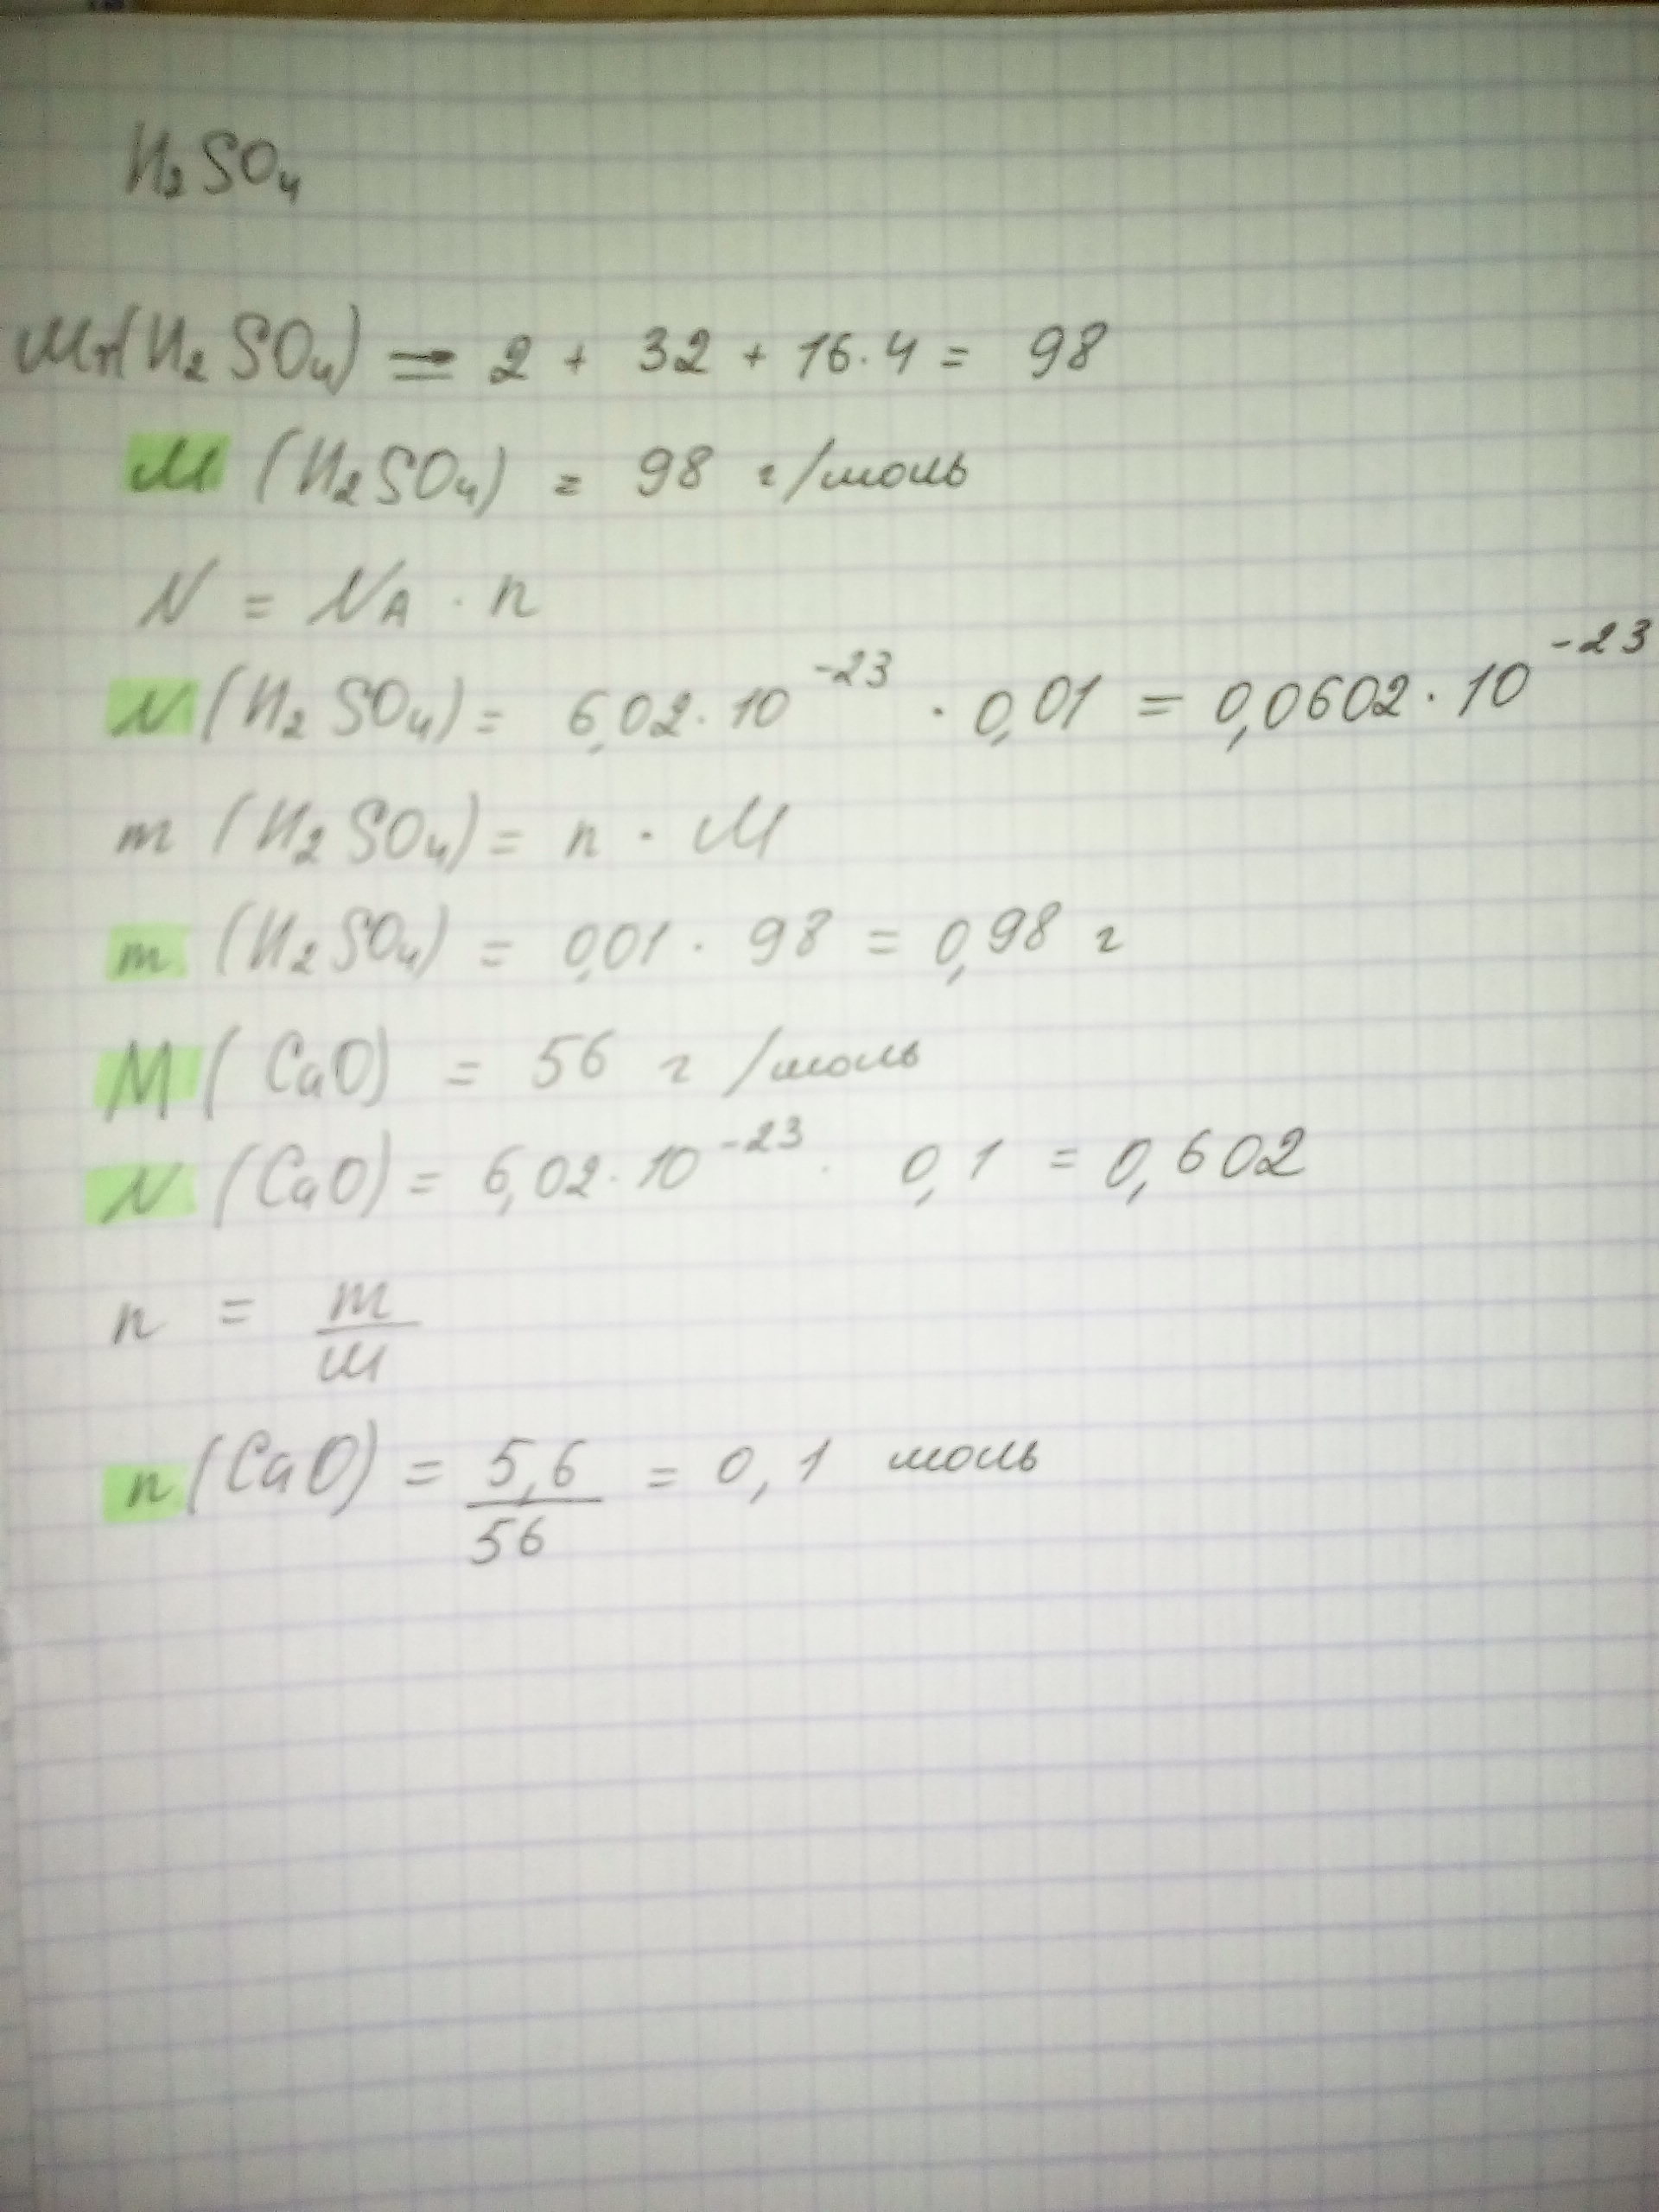 H₂SO₄
Mr(H₂SO₄) = 2 + 32 + 16·4 = 98
M (H₂SO₄) = 98 г/моль
N = NA · n
N (H₂SO₄) = 6,02·10⁻²³ · 0,01 = 0,0602·10⁻²³
m (H₂SO₄) = n · M
m (H₂SO₄) = 0,01 · 98 = 0,98 г
M (CaO) = 56 г/моль
N (CaO) = 6,02·10⁻²³ · 0,1 = 0,602
n = m/M
n (CaO) = 5,6/56 = 0,1 моль